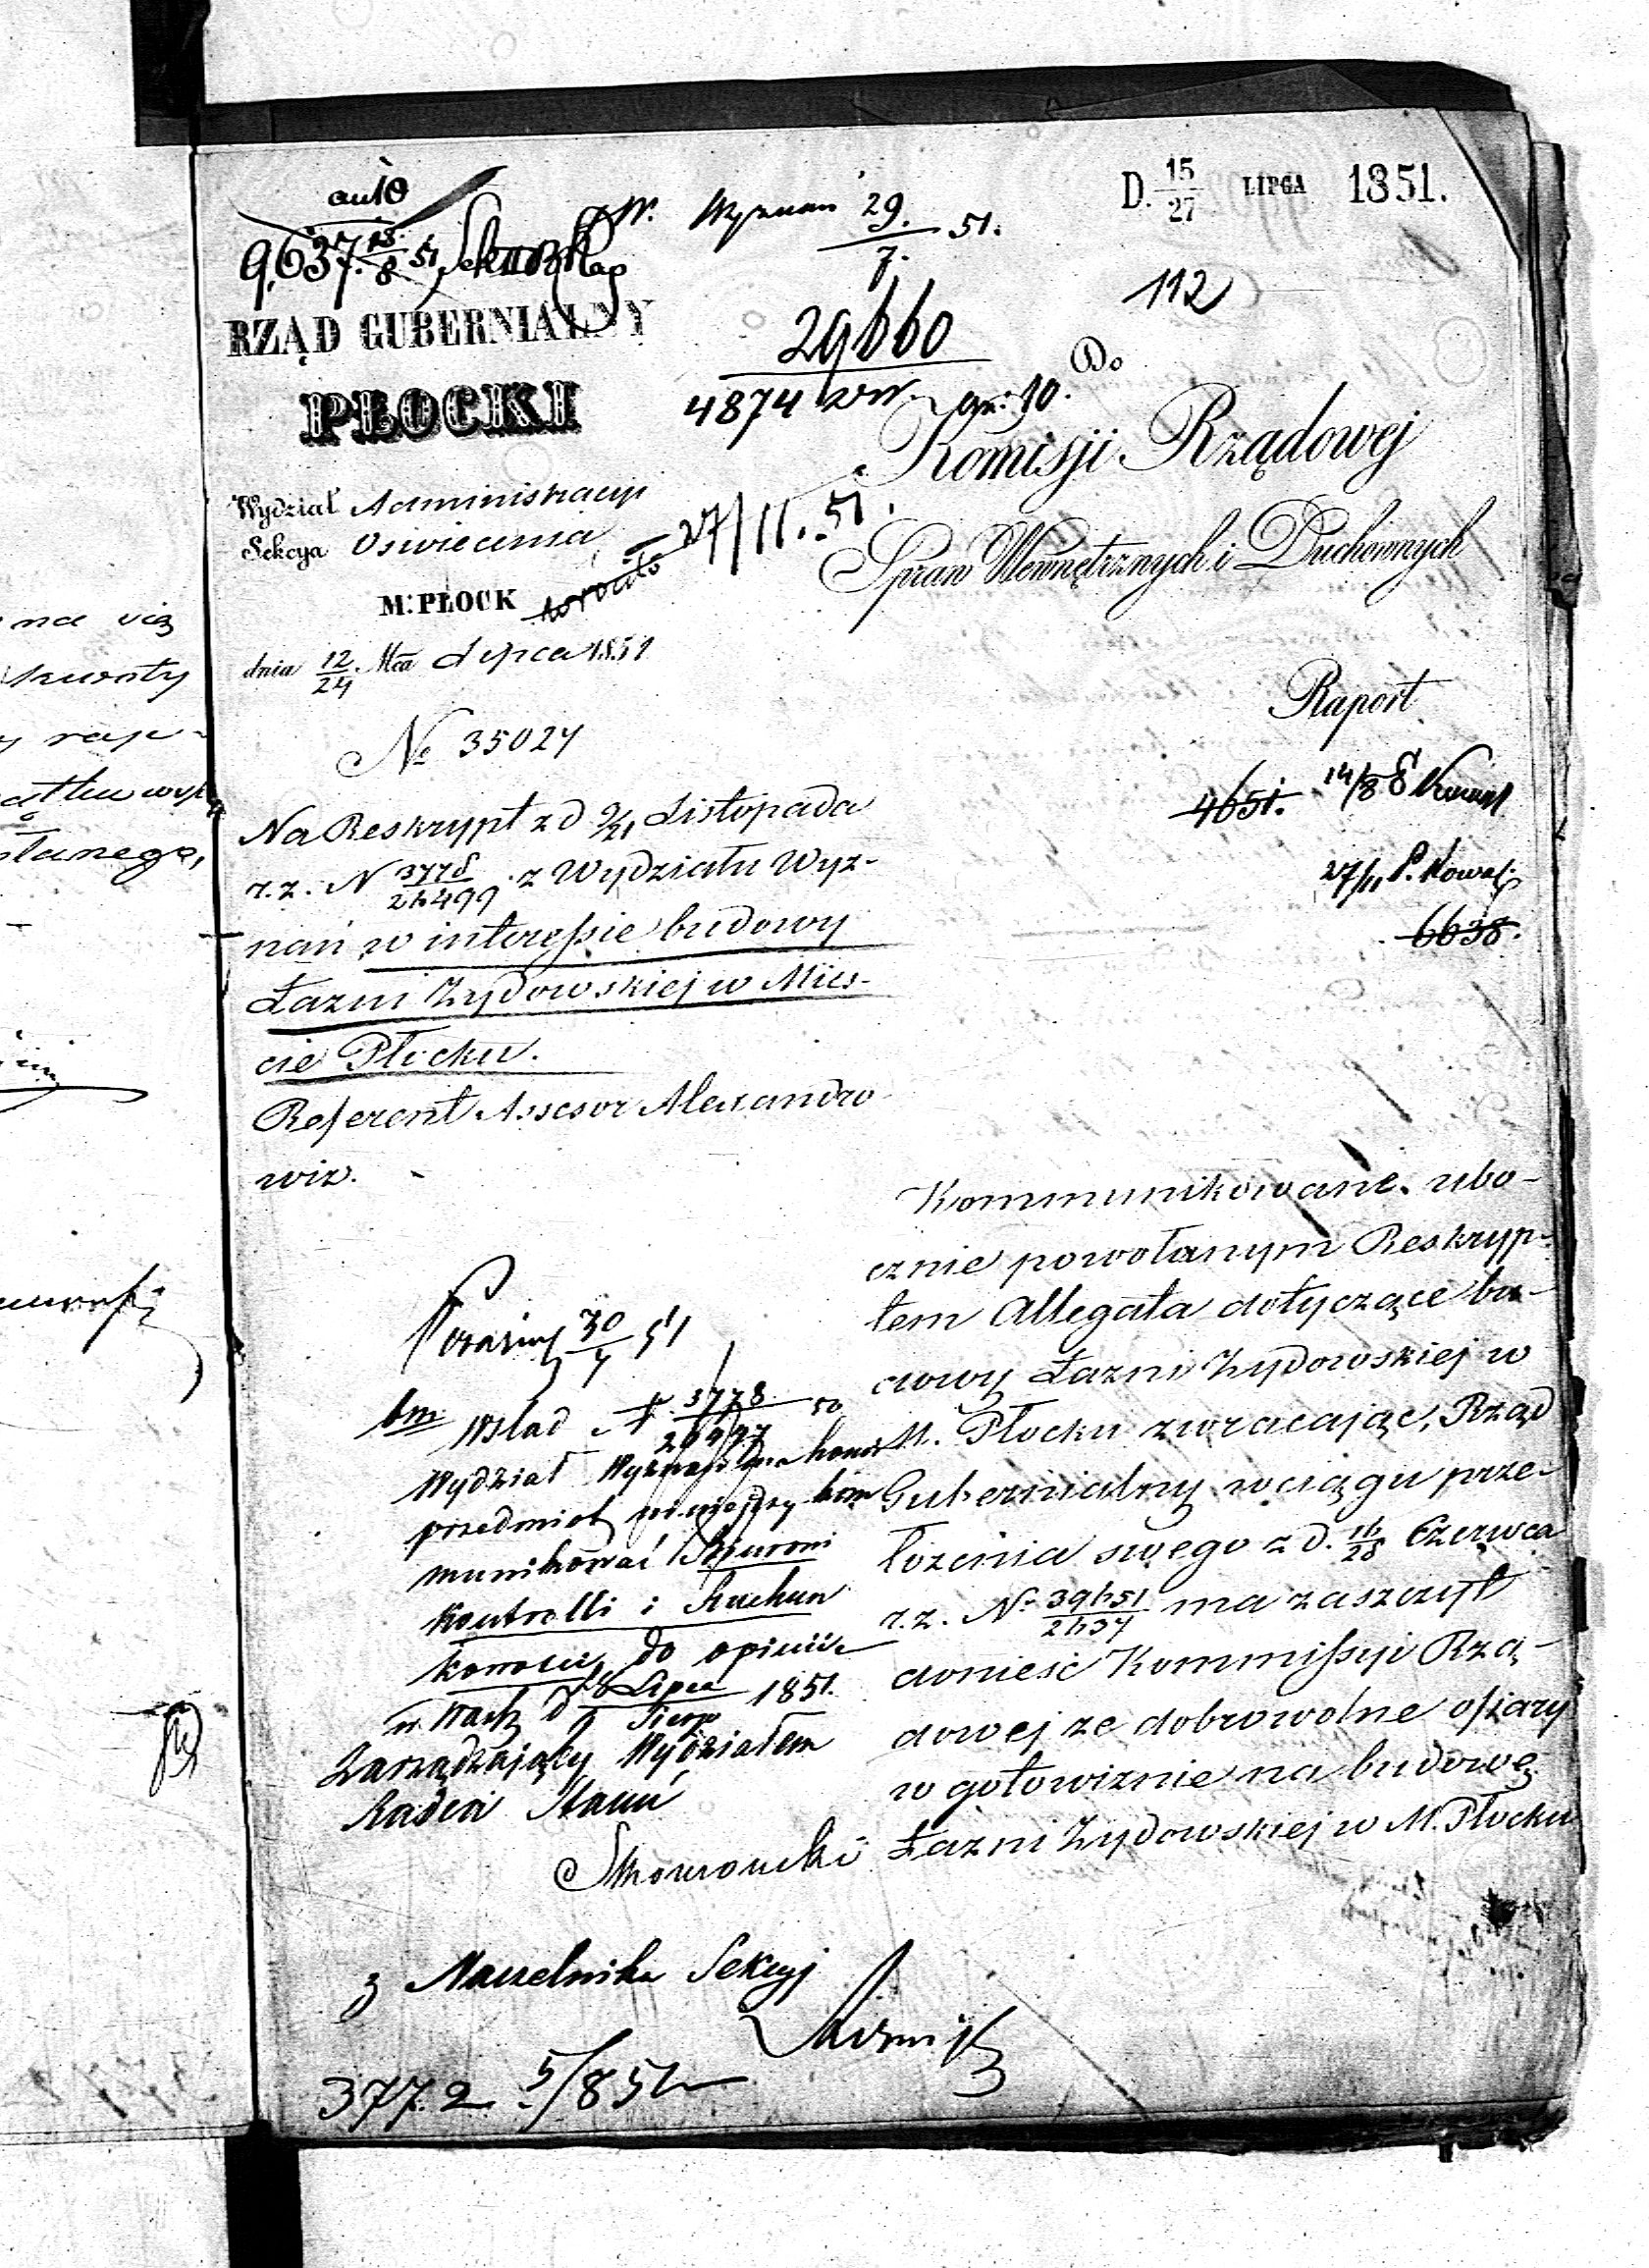 D. 15/27 LIPGA 1851.
W. Wyznań 29./7. 51.
9,637.
112
RZĄD GUBERNIALNY
PŁOCKI
29660
4874
Do
Komisji Rządowej
Spraw Wewnętrznych i Duchownych
Wydział Administracyi
Sekcya Oswiecenia
27/11. 51.
M. PŁOCK
dnia 12/24 Mca Lipca 1851
Raport
№ 35024
4651. 14/8
27/11 P. Kowal.
6638.
Na Reskrypt z d 9/21 Listopada
r.z. N 3778/26499 z Wydziału Wyz-
nań w interessie budowy
Łazni Zydowskiej w Mies-
cie Płocku.
Referent Assesor Alexandro-
wiz.
Kommunikowane ubo-
cznie powołanym Reskryp-
tem Allegata dotyczące bu-
dowy Łazni Zydowskiej w
M. Płocku zwracając, Rząd
Gubernialny w ciągu prze-
łożenia swego z d. 16/28 Czerwca
r.z. No 39651/2637 ma zaszczyt
donieść Kommissyi Rzą-
dowej ze dobrowolne ofiary
w gotowiznie na budowę
Łazni Zydowskiej w M. Płocku
30/7 51
Wydział
przedmiot niniejszy kom
munikować Biurowi
Kontrolli i Rachun
kowości do opinii
w Warsz d 28 Lipca/9 Sierp 1851.
Zarządzający Wydziałem
Radca Stanu
z Naczelnika Sekcyj
3772 5/8 51